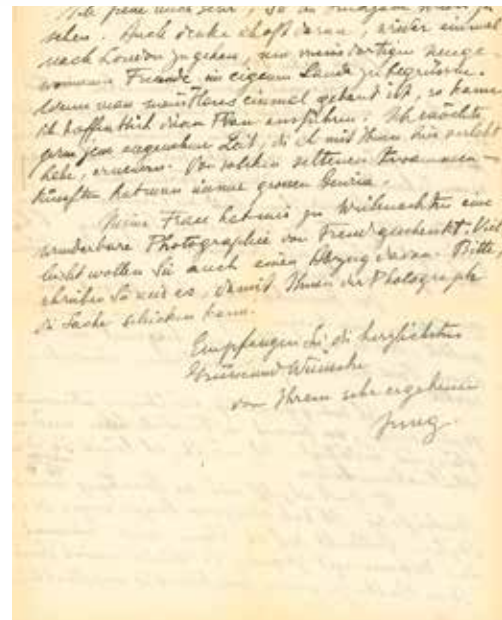 Ich freue mich sehr, Sie in
sehen. Auch denke ich oft daran, wieder einmal
nach London zu gehen, um meine dortigen neuge-
wonnenen Freunde im eigenen Lande zu begrüssen.
Wenn nun mein Haus einmal gebaut ist, so kann
ich hoffentlich diesen Plan ausführen. Ich möchte
gern jene angenehme Zeit, die ich mit Ihnen hier verlebt
habe, erneuern. Von solchen seltenen Zusammen-
künften hat man immer grossen Gewinn.
Meine Frau hat mir zu Weihnachten eine
wunderbare Photographie von Freud geschenkt. Viel-
leicht wollen Sie auch einen Abzug davon. Bitte,
schreiben Sie mir es, damit Ihnen der Photograph
die Sache schicken kann.
Empfangen Sie die herzlichsten
Grüsse und Wünsche
von Ihrem sehr ergebenen
Jung.